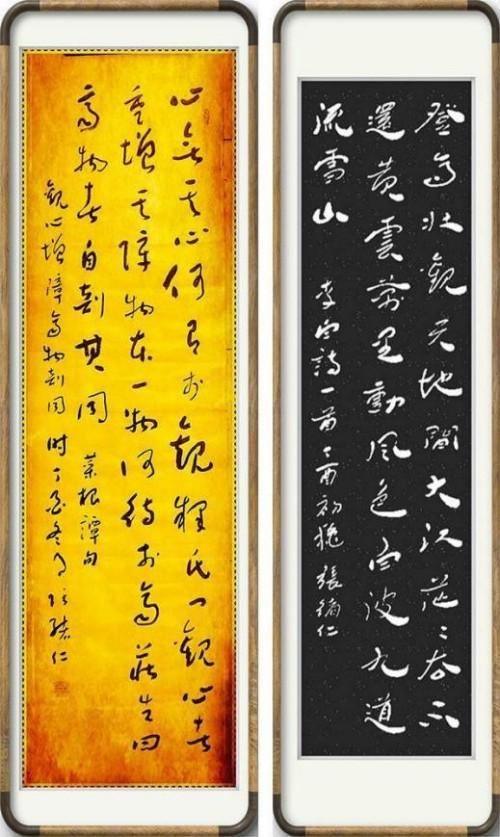 登高壯觀天地間大江茫茫去不
還黃雲萬里動風色白波九道
流雪山 李白詩一首丁酉初穐張仁
心無其心何有於觀釋氏曰觀心者
重增其障物本一物何待於齊莊生曰
齊物者自剖其同 菜根譚句
觀心增障齊物剖同 時丁酉冬月張仁